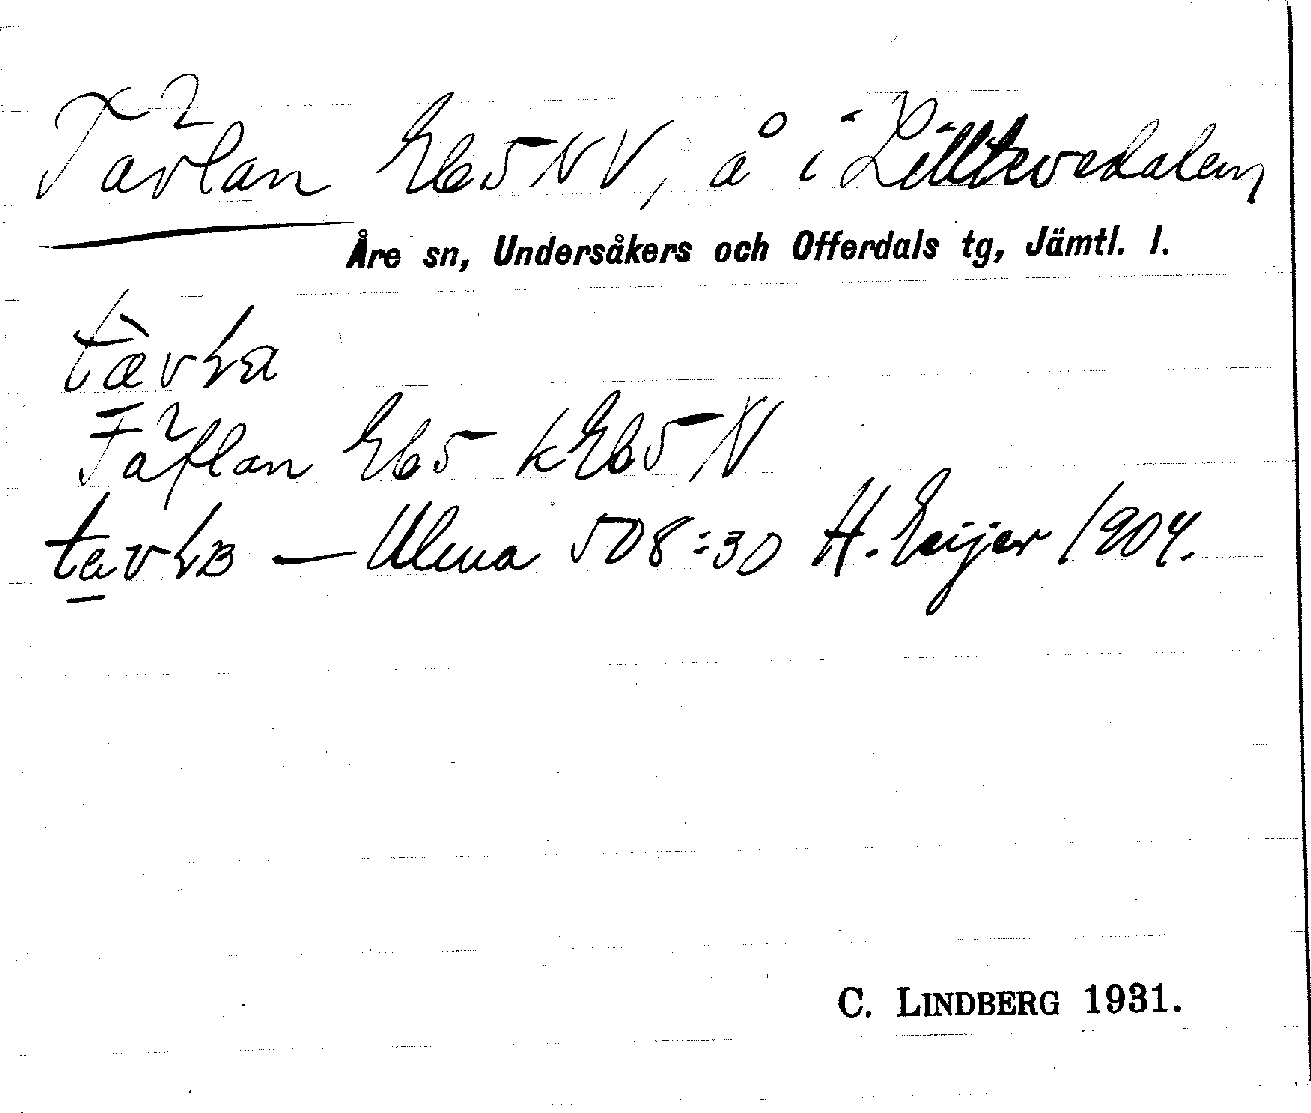 Tåvlan Eb5NV, å i Lilltevedalen
Åre sn, Undersåkers och Offerdals tg, Jämtl. l.
Tåflan Eb5 kEb5N
— Ulma 508:30 H. Geijer 1904.
C. LINDBERG 1931.